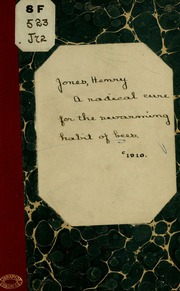 SF
523
J72
Jones, Henry
A radical cure
for the swarming
habit of bees.
c1910.